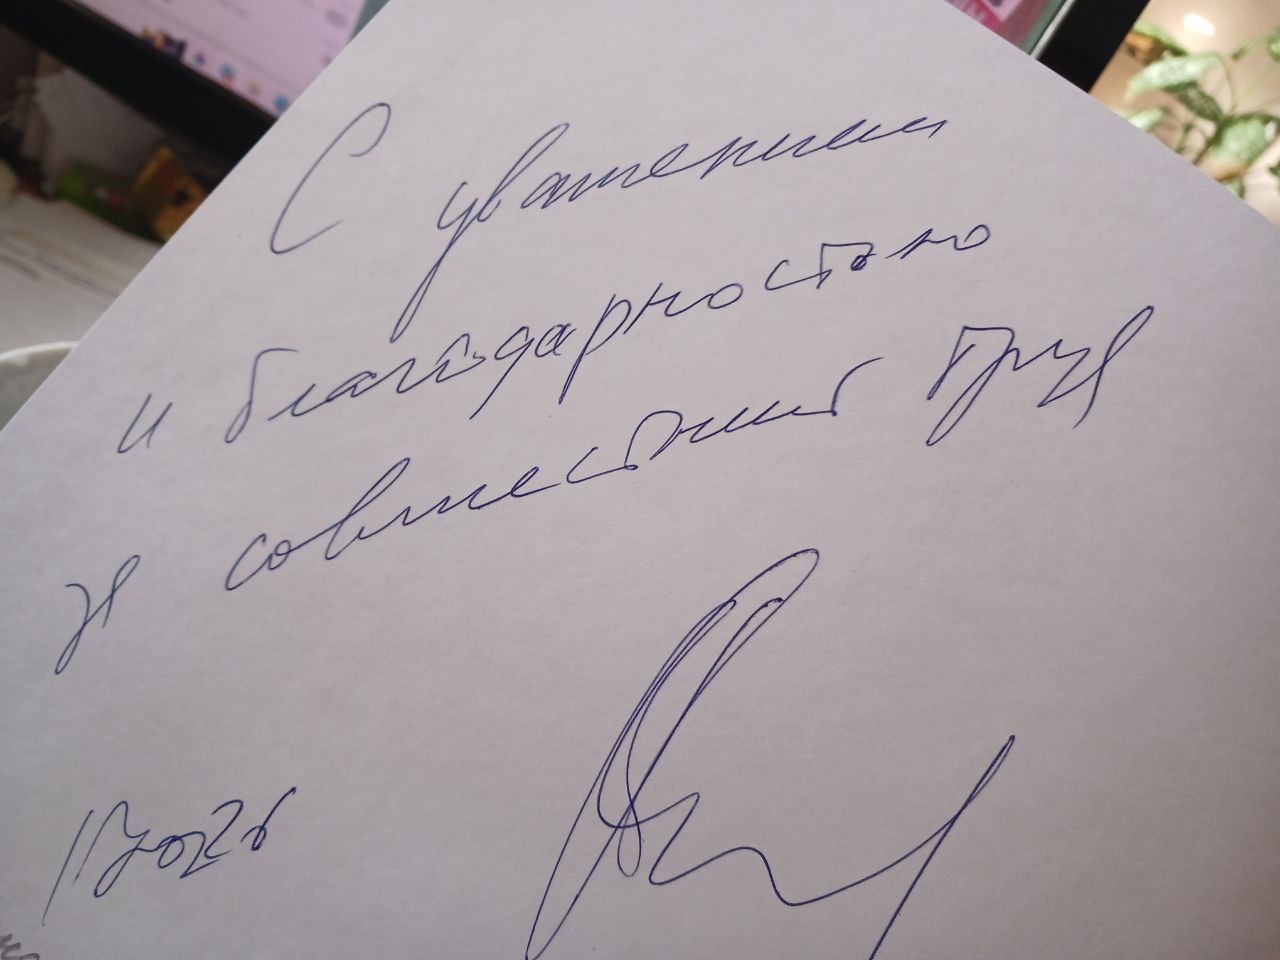 С уважением
и благодарностью
за совместный труд